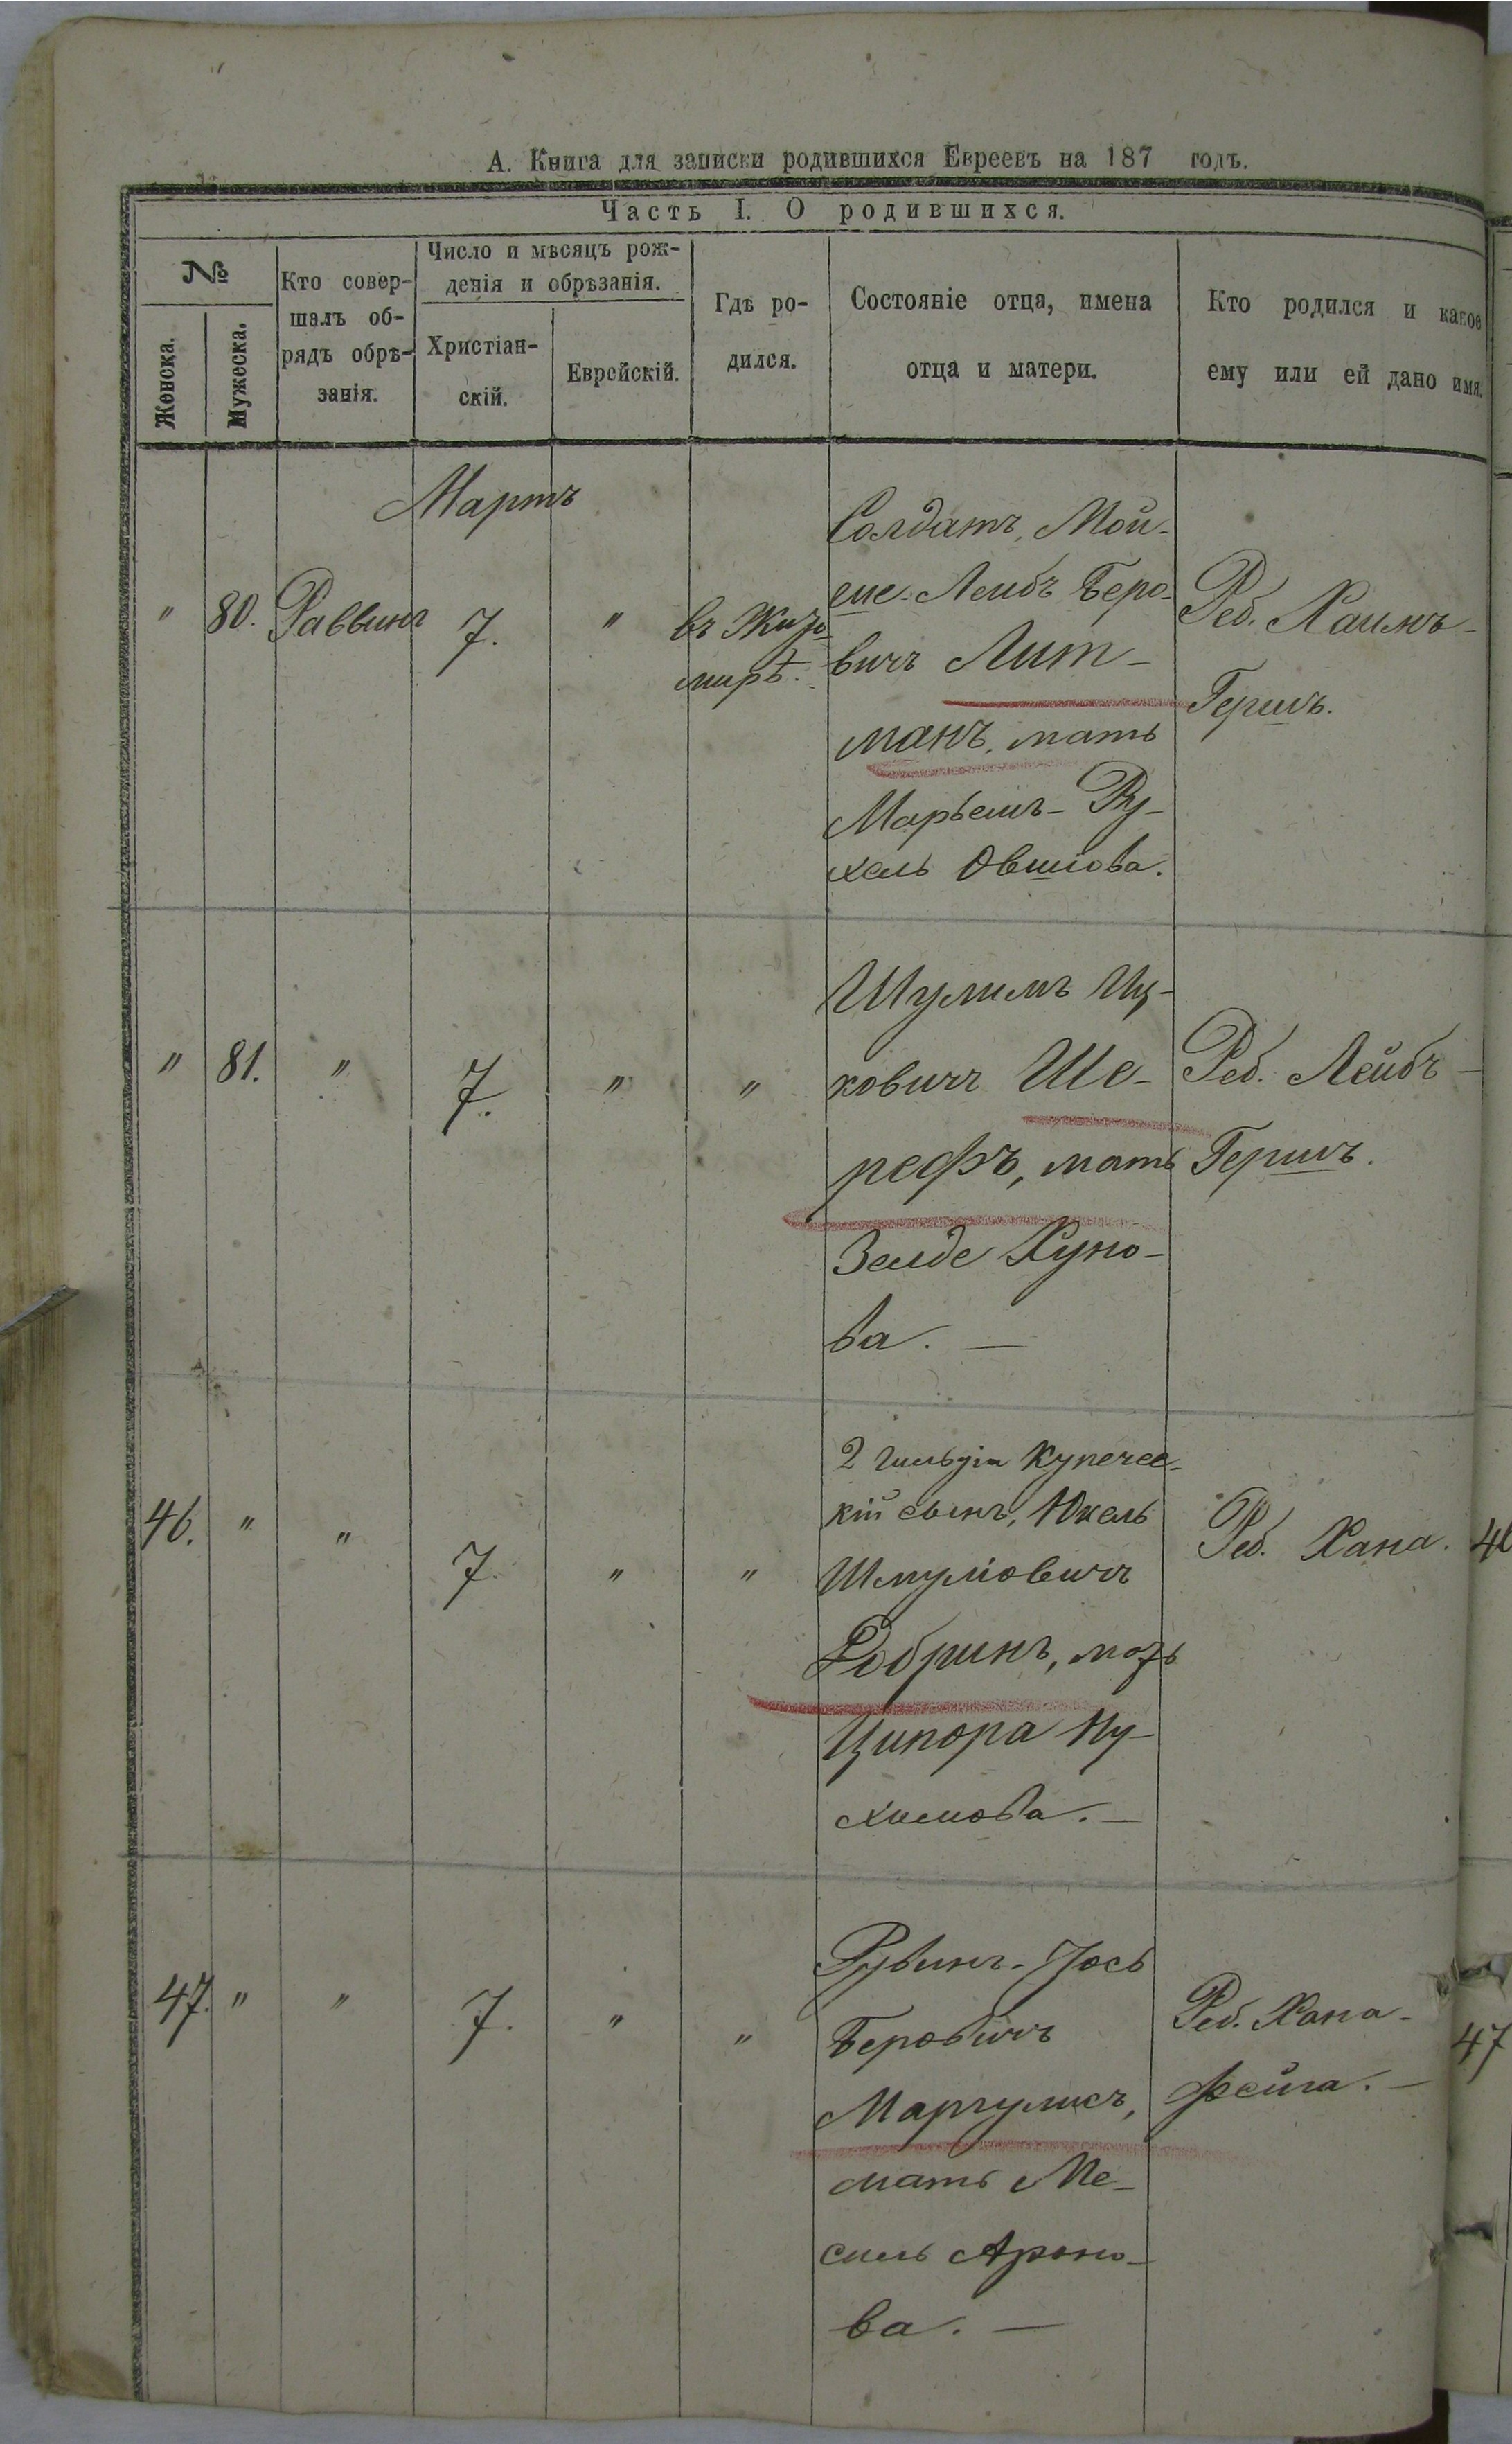 А. Книга для записки родившихся Евреевъ на 187 годъ.
Часть I. О родившихся.
№
Женска.
Мужеска.
Кто совер-
шалъ об-
рядъ обрѣ-
занія.
Число и мѣсяцъ рож-
денія и обрѣзанія.
Христіан-
скій.
Еврейскій.
Гдѣ ро-
дился.
Состояніе отца, имена
отца и матери.
Кто родился и какое
ему или ей дано имя.
Мартъ
" 80. Раввинъ 7. "
въ Жито-
мирѣ.
Солдатъ, Мой-
ше-Лейбъ Беро-
вичъ Лит-
манъ, мать
Марьемъ-Ру-
хель Овшіова.
Реб. Хаимъ-
Гершъ.
" 81. " 7. " "
Шулимъ Иц-
ковичъ Ше-
рефъ, мать
Зелде Хуно-
ва. —
Реб. Лейбъ-
Гершъ.
46. " " 7. " "
2 гильдіи купечес-
кій сынъ, Юкель
Шмуліовичъ
Добринъ, мать
Ципора Ну-
химова. —
Реб. Хана.
46
47. " " 7. " "
Рувинъ-Іось
Беровичъ
Маргулисъ,
мать Ме-
силь Ароно-
ва. —
Реб. Хана-
фейга. —
47